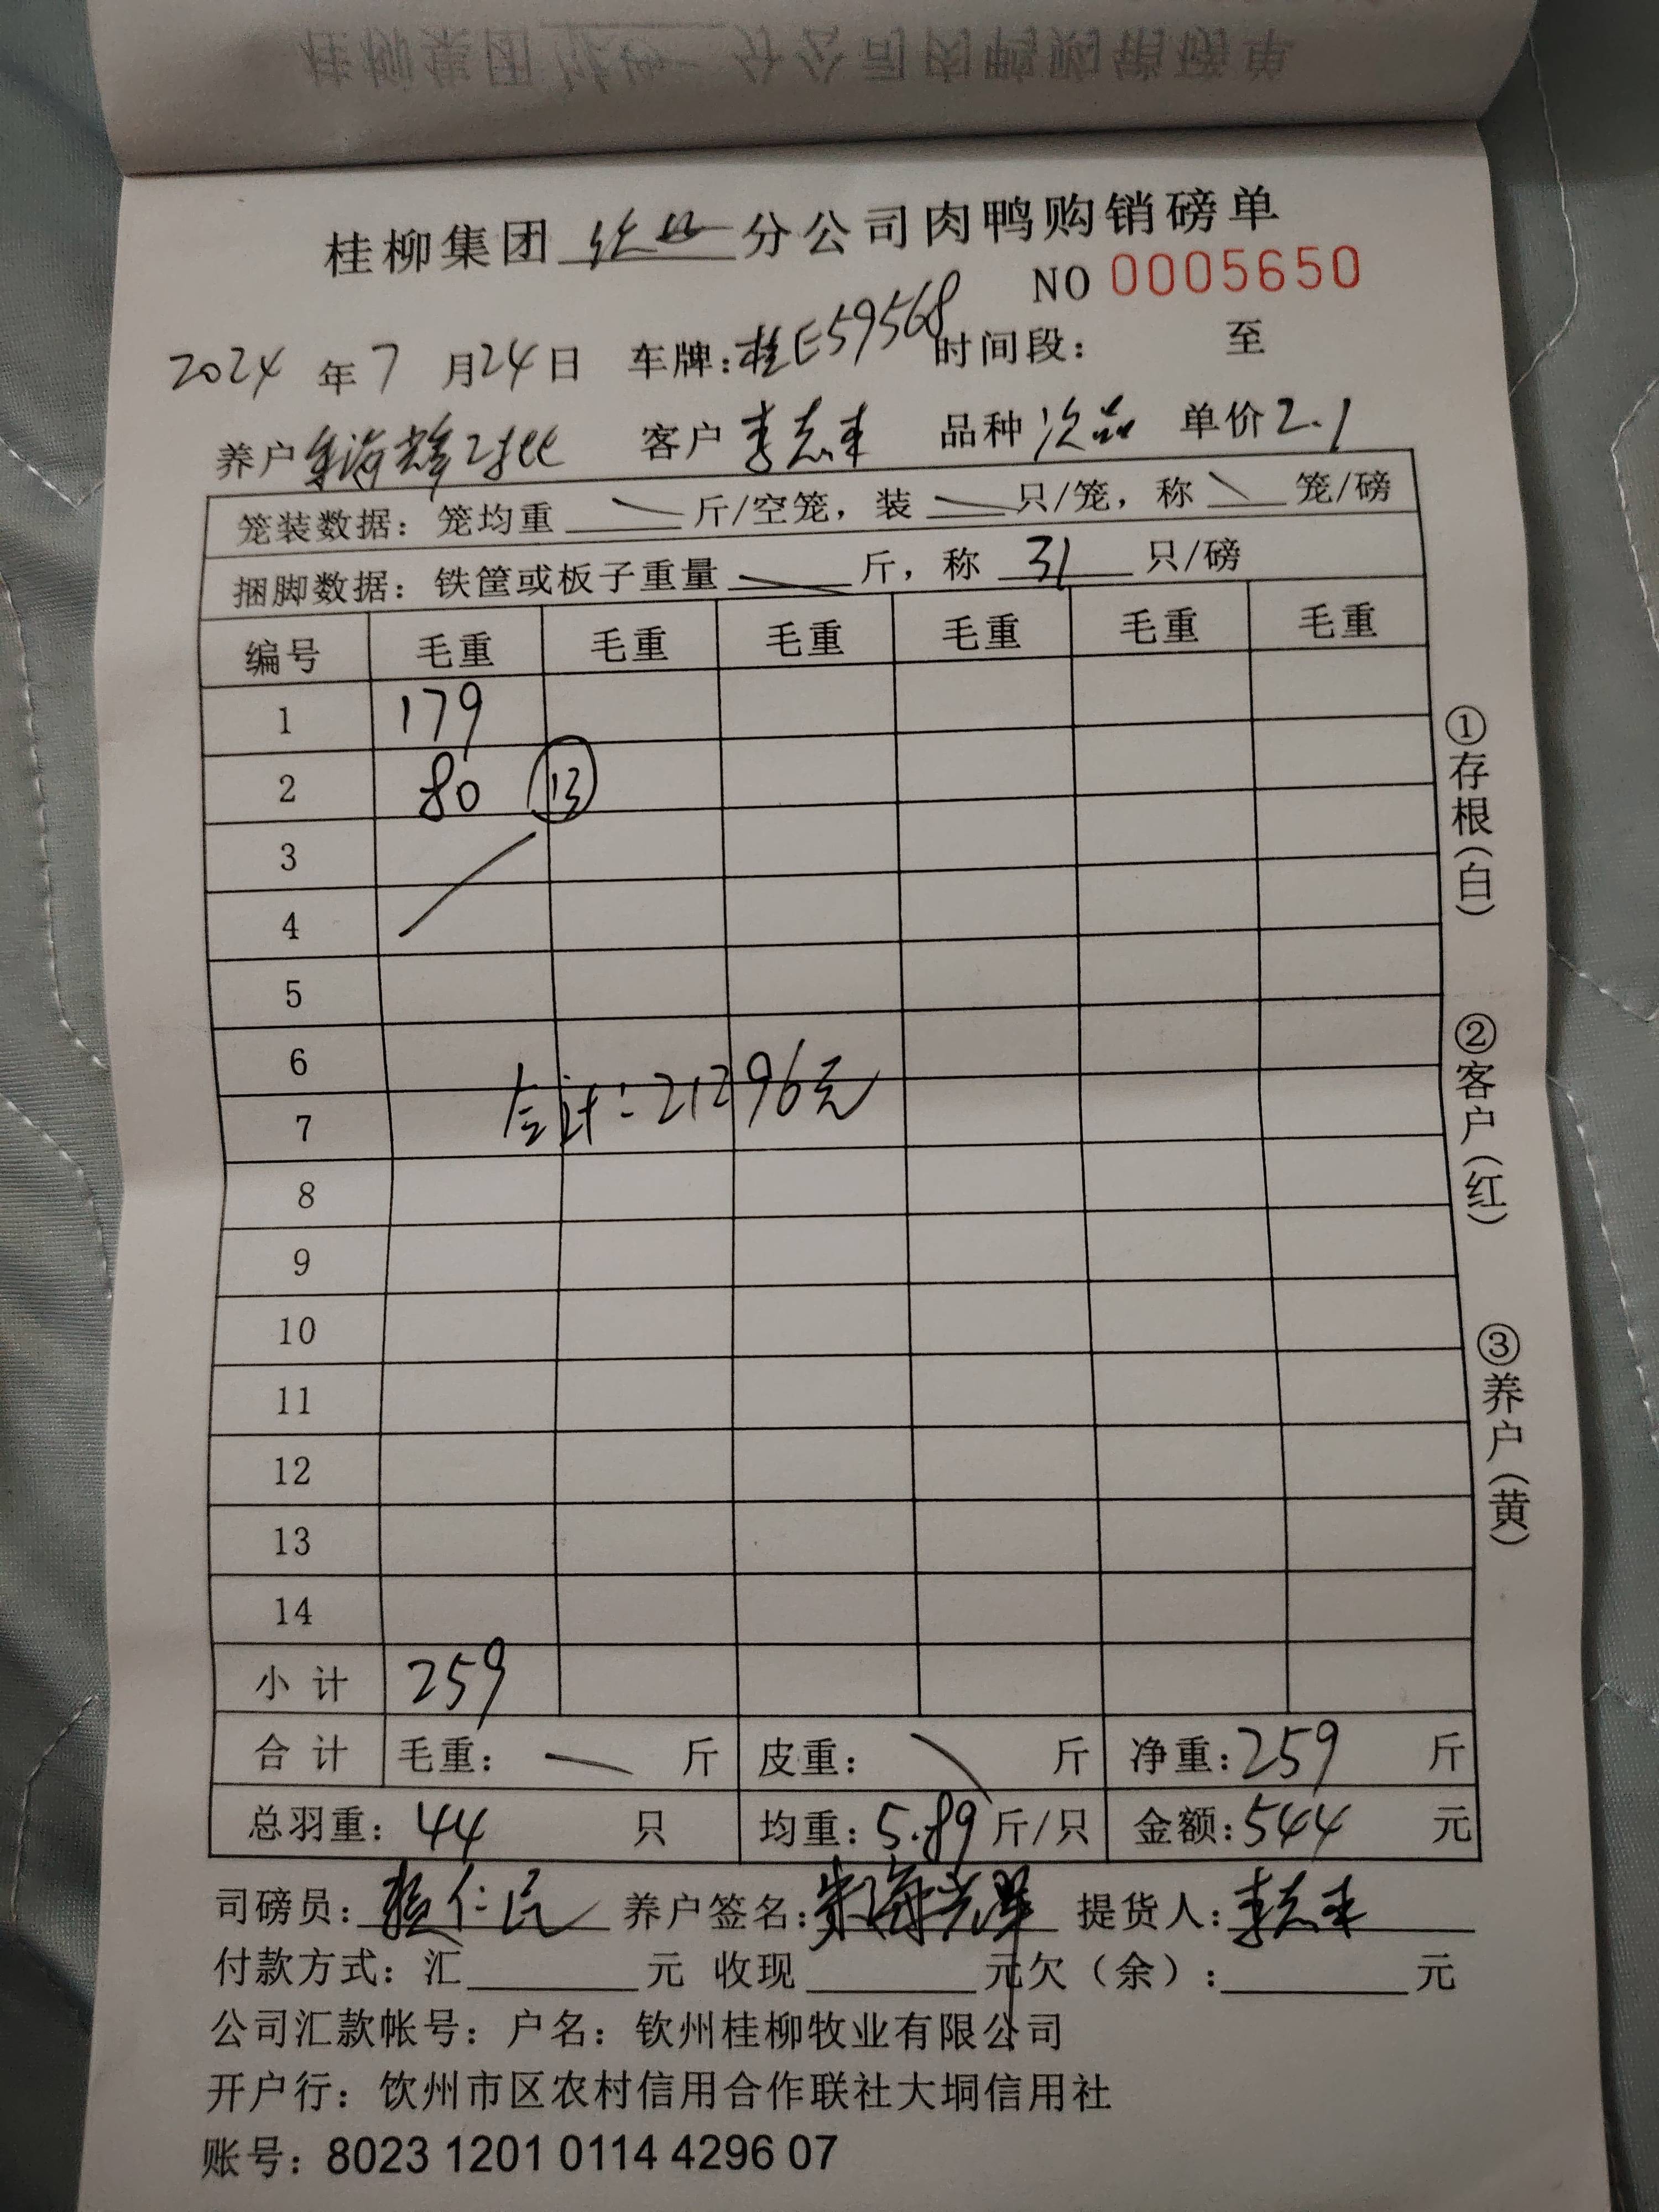 桂柳集团 分公司肉鸭购销磅单
NO 0005650
2024 年 7 月 24 日 车牌:桂E59568 时间段: 至
养户 客户 李志丰 品种 次品 单价 2.1
笼装数据: 笼均重 斤/空笼, 装 只/笼, 称 笼/磅
捆脚数据: 铁筐或板子重量 斤, 称 31 只/磅
编号 毛重 毛重 毛重 毛重 毛重 毛重
1 179
2 80 13
3
4
5
6
合计:21296元
7
8
9
10
11
12
13
14
小计 259
合计 毛重: 斤 皮重: 斤 净重:259 斤
总羽重: 44 只 均重: 5.89 斤/只 金额:544 元
司磅员: 仁民 养户签名: 提货人:李志丰
付款方式: 汇 元 收现 元欠(余): 元
公司汇款帐号: 户名: 钦州桂柳牧业有限公司
开户行: 饮州市区农村信用合作联社大垌信用社
账号: 8023 1201 0114 4296 07
①存根(白)
②客户(红)
③养户(黄)